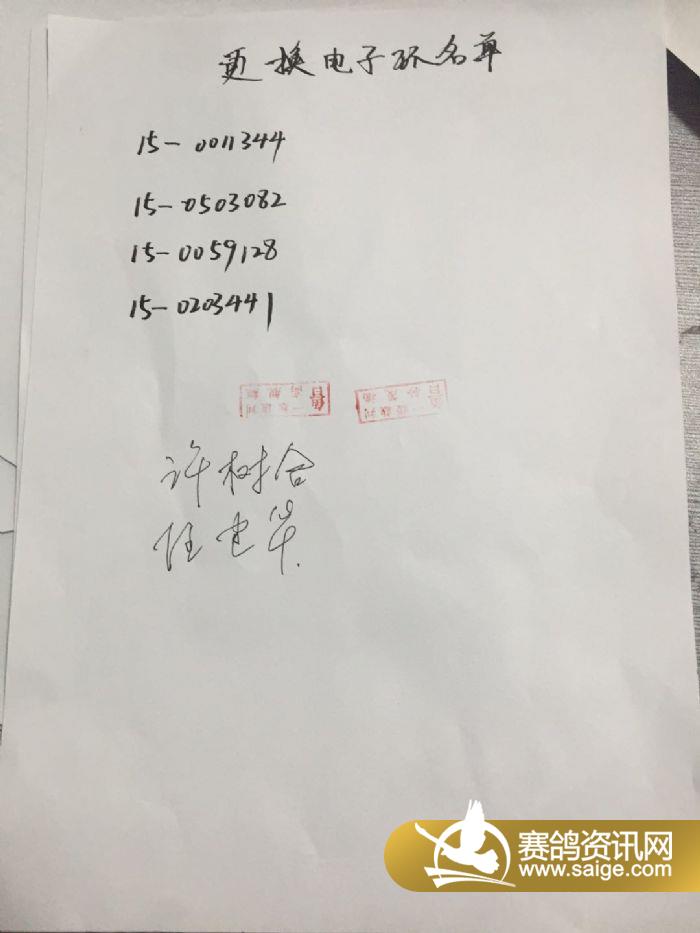 更换电子环名单
15-0011344
15-0503082
15-0059128
15-0203441
鲁 二级裁判
鲁 二级裁判
许树合
赛鸽资讯网
www.saige.com